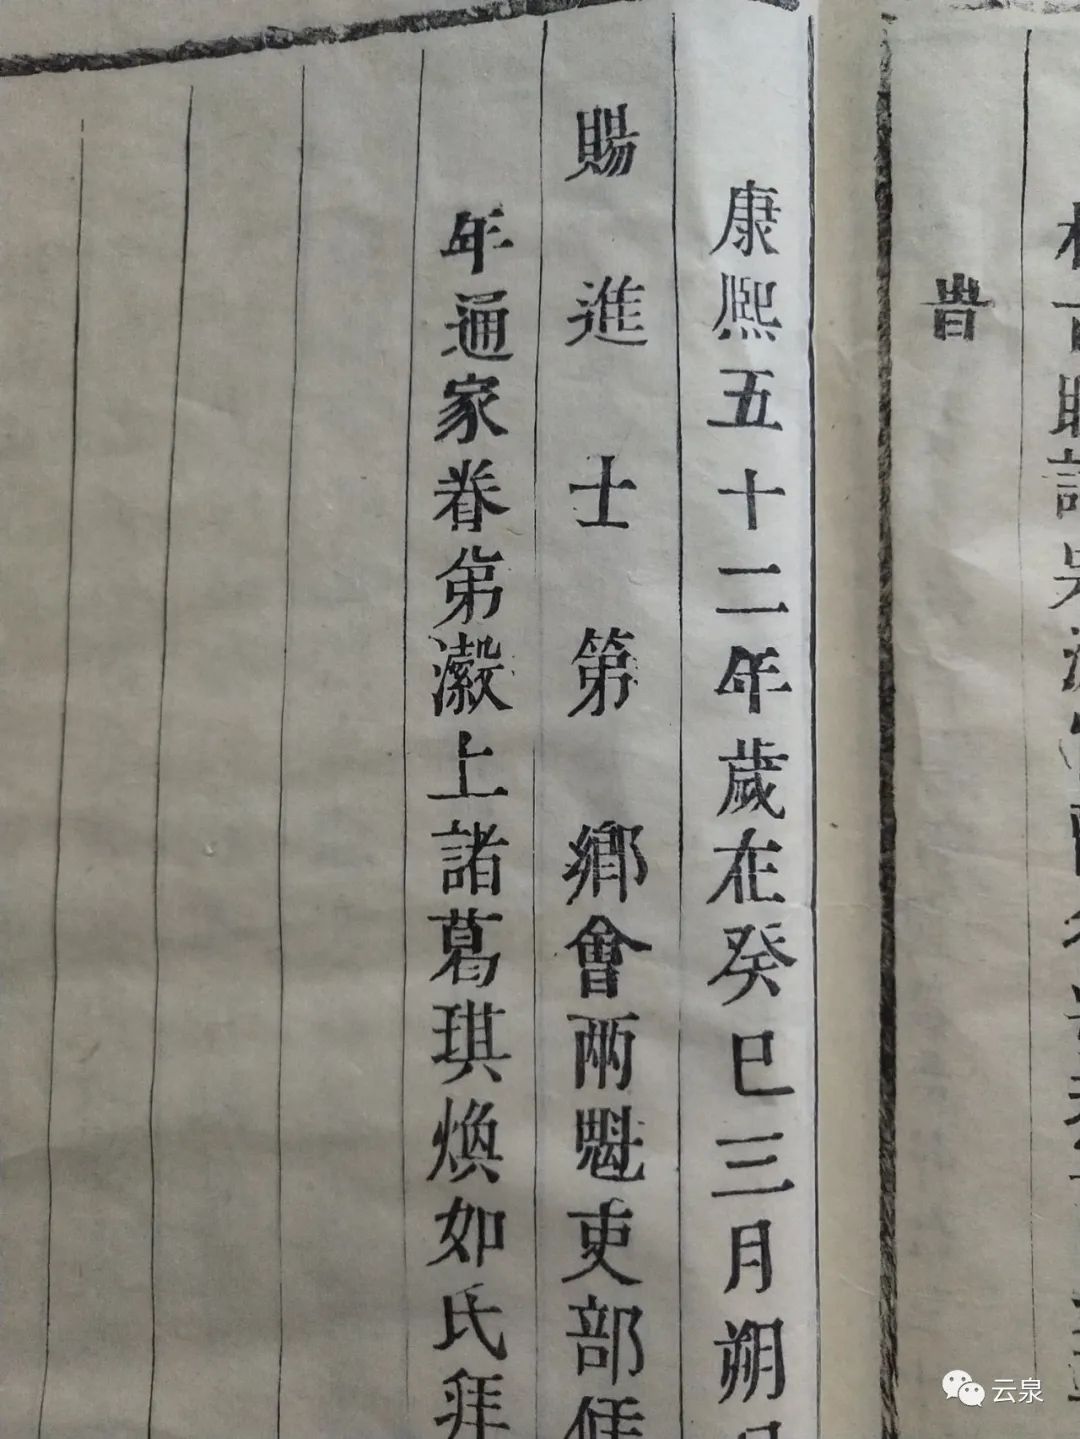 旹
康熙五十二年歲在癸巳三月朔
賜進士第鄉會兩魁吏部
年通家眷弟瀫上諸葛琪煥如氏拜
云泉